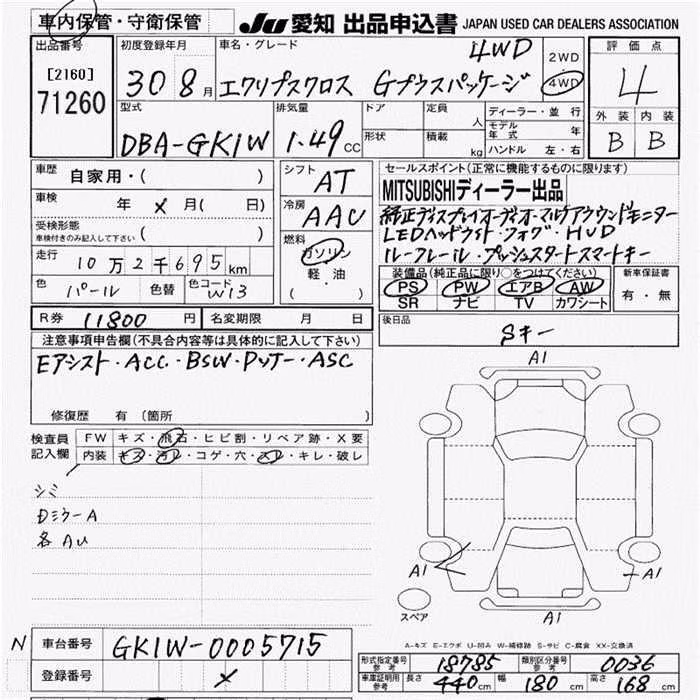 車内保管・守衛保管 JU 愛知 出品申込書 JAPAN USED CAR DEALERS ASSOCIATION
出品番号 初度登録年月 車名・グレード 4WD 2WD 評価点
[2160] 30 8月 エクリプスクロス Gプラスパッケージ 4WD 4
71260
型式 排気量 ドア 定員 人 ディーラー・並行 外装 内装
DBA-GK1W 1.49CC 形状 積載 kg モデル年式 年 B B
ハンドル 左・右
車歴 自家用・( )
車検 年 × 月( 日)
受検形態
車検付きのみ記入して下さい ( )
走行 10万2千695km
色 パール 色替 色コード W13
シフト AT
冷房 AAC
燃料 ガソリン
軽・油
( )
セールスポイント(正常に機能するものに限ります)
MITSUBISHIディーラー出品
純正ディスプレイオーディオ・マルチアラウンドモニター
LEDヘッドライト・フォグ・HUD
ルーフレール・プッシュスタートスマートキー
装備品(純正品に限り○をつけてください) 新車保証書
PS PW エアB AW 有・無
SR ナビ TV カワシート
R券 11800円 名変期限 月 日
後日品 Sキー
注意事項申告欄(不具合内容等は具体的に記入して下さい)
Eアシスト・ACC・BSW・Dッナー・ASC
修復歴 有 (箇所 )
検査員記入欄 FW キズ・飛石・ヒビ割・リペア跡・X要
内装 キズ・汚レ・コゲ・穴・スレ・キレ・破レ
シミ
Dミラー A
各 AU
A1
A1 A1
スペア A1
A-キズ E-エクボ U-凹み W-補修跡 S-サビ C-腐食 XX-交換済
N 車台番号 GK1W-0005715
登録番号 ×
形式指定番号 参考 18785 類別区分番号 参考 0036
車庫証明用 参考 長さ 440cm 幅 180cm 高さ 168cm